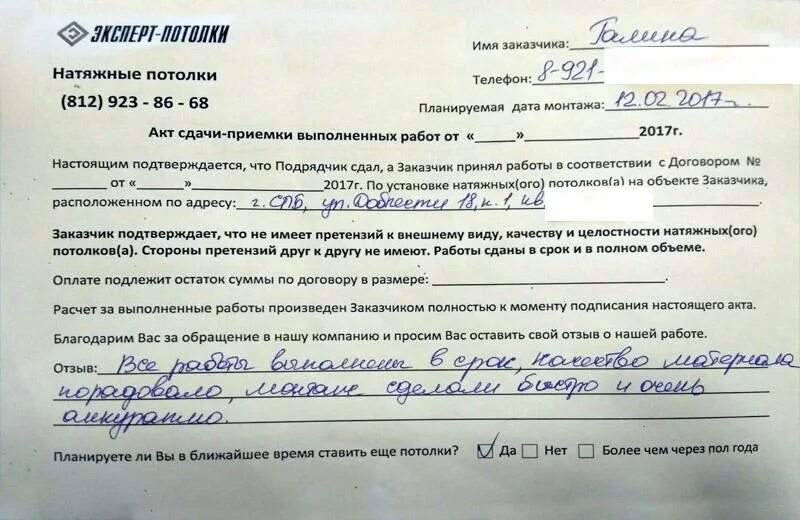 ЭКСПЕРТ-ПОТОЛКИ
Имя заказчика: Галина
Натяжные потолки
Телефон: 8-921-
(812) 923 - 86 - 68
Планируемая дата монтажа: 12.02.2017г.
Акт сдачи-приемки выполненных работ от «_____»_______________2017г.
Настоящим подтверждается, что Подрядчик сдал, а Заказчик принял работы в соответствии с Договором №
_______ от «_____»_________________2017г. По установке натяжных(ого) потолков(а) на объекте Заказчика,
расположенном по адресу: г. СПб, ул. Доблести 18, к. 1, кв
Заказчик подтверждает, что не имеет претензий к внешнему виду, качеству и целостности натяжных(ого)
потолков(а). Стороны претензий друг к другу не имеют. Работы сданы в срок и в полном объеме.
Оплате подлежит остаток суммы по договору в размере: ______________________________
Расчет за выполненные работы произведен Заказчиком полностью к моменту подписания настоящего акта.
Благодарим Вас за обращение в нашу компанию и просим Вас оставить свой отзыв о нашей работе.
Отзыв: Все работы выполнены в срок, качество материала
порадовало, монтаж сделали быстро и очень
аккуратно.
Планируете ли Вы в ближайшее время ставить еще потолки? ☑ Да ☐ Нет ☐ Более чем через пол года